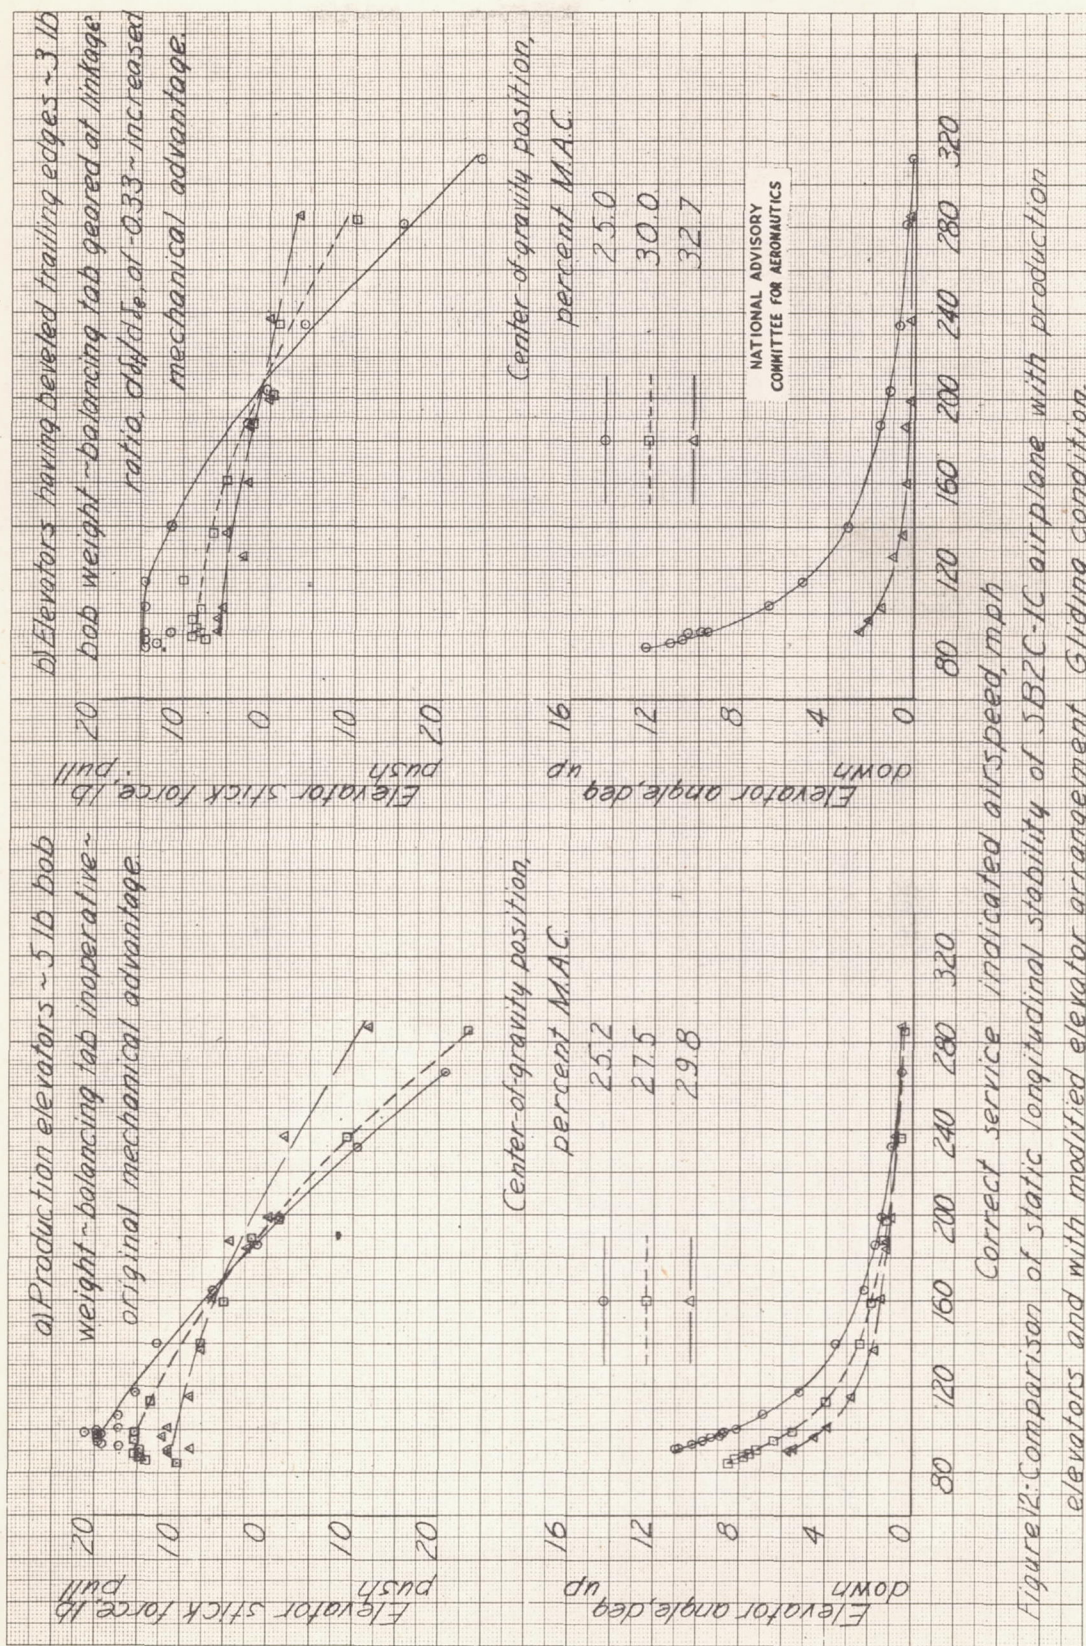 a) Production elevators ~ 5 lb bob
weight ~ balancing tab inoperative ~
original mechanical advantage.
20
10
0
10
20
pull
push
Elevator stick force, lb
Center-of-gravity position,
percent M.A.C.
25.2
27.5
29.8
16
12
8
4
0
up
down
Elevator angle, deg
80 120 160 200 240 280 320
b) Elevators having beveled trailing edges ~ 3 lb
bob weight ~ balancing tab geared at linkage
ratio, dδt/dδe, of -0.33 ~ increased
mechanical advantage.
20
10
0
10
20
pull
push
Elevator stick force, lb
Center-of-gravity position,
percent M.A.C.
25.0
30.0
32.7
NATIONAL ADVISORY
COMMITTEE FOR AERONAUTICS
16
12
8
4
0
up
down
Elevator angle, deg
80 120 160 200 240 280 320
Correct service indicated airspeed, mph
Figure 12: Comparison of static longitudinal stability of SB2C-1C airplane with production
elevators and with modified elevator arrangement. Gliding condition.